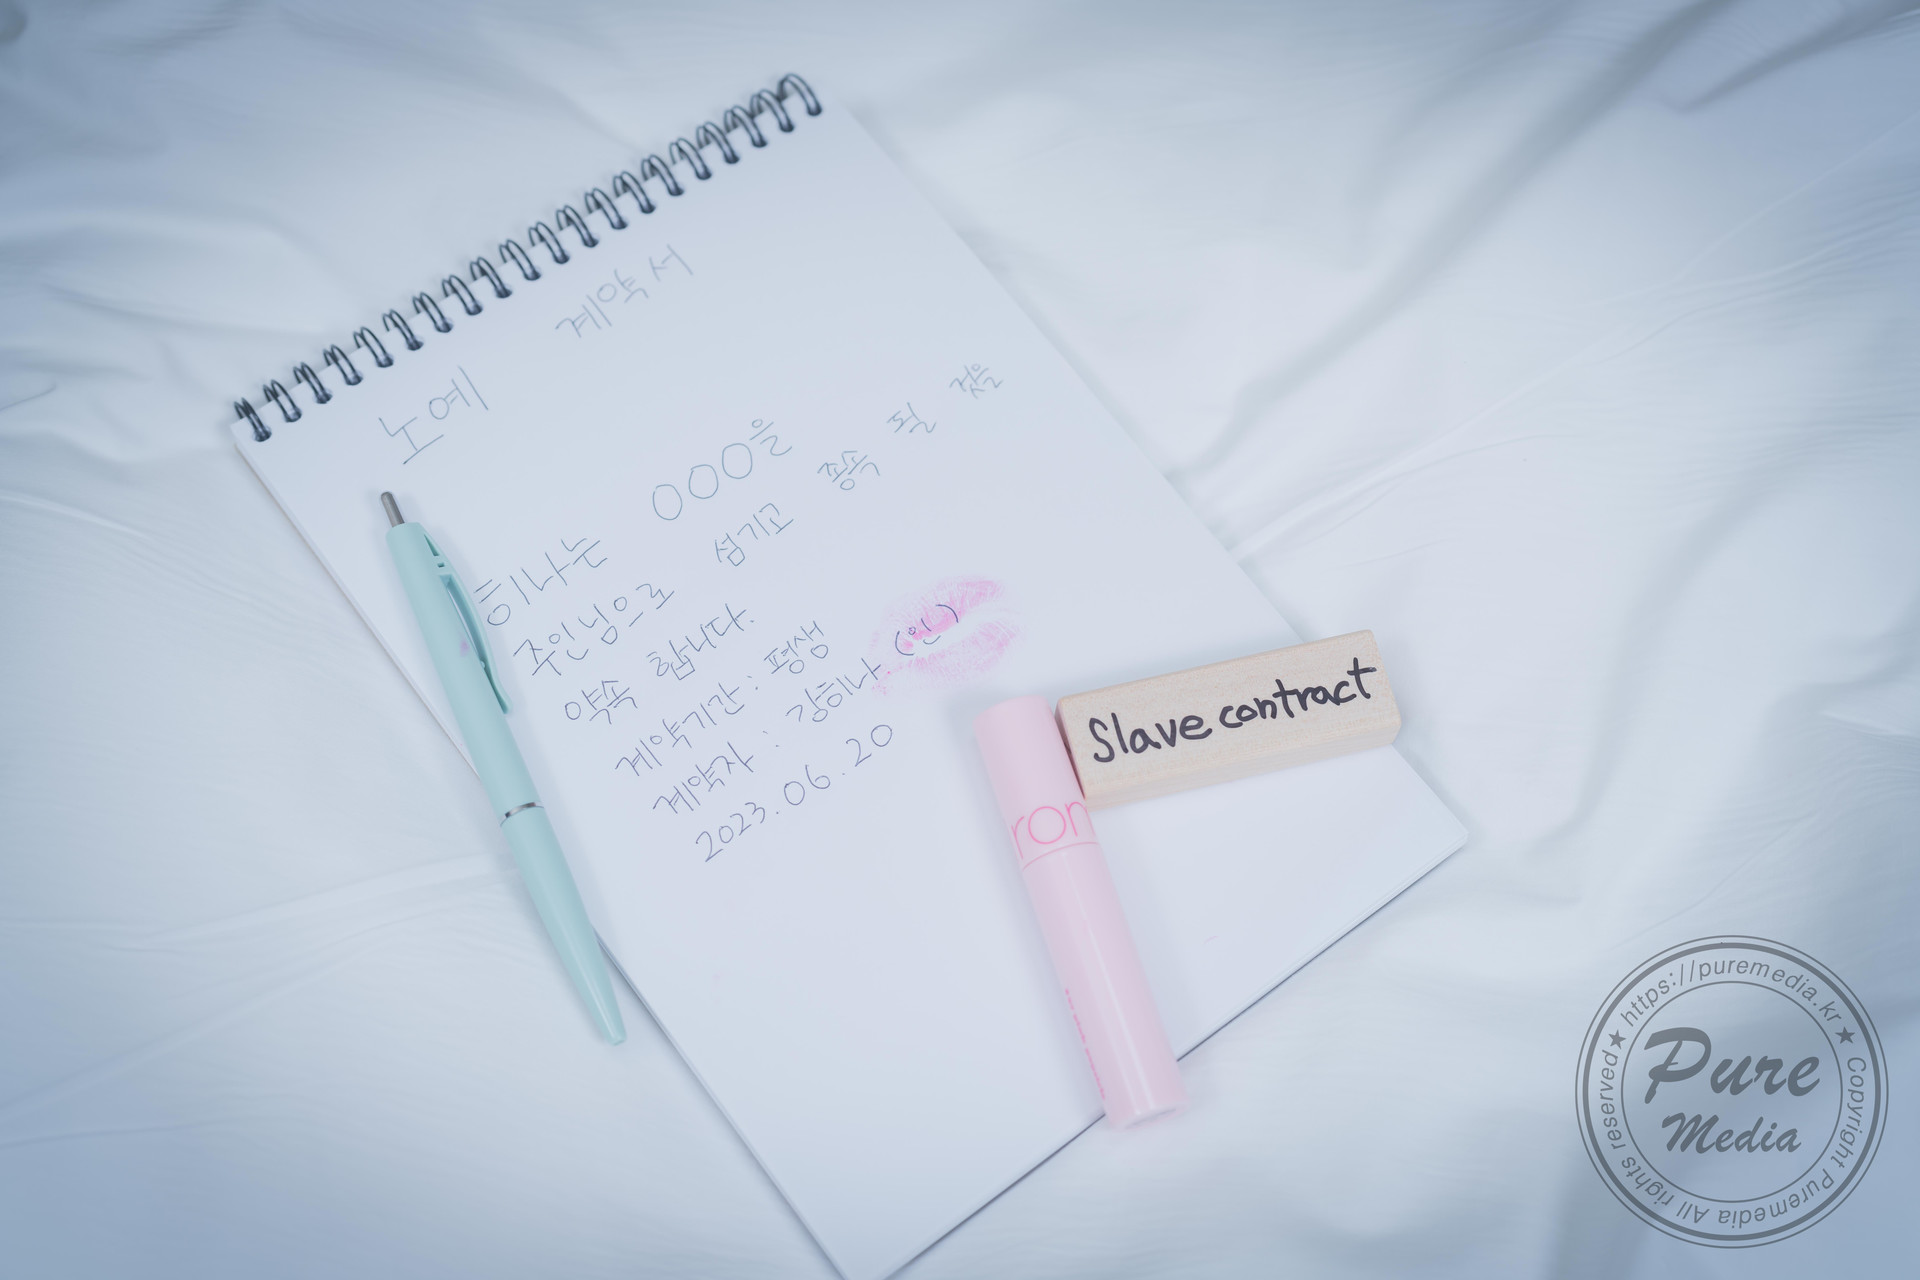 노예 계약서
희나는 OOO을
주인님으로 섬기고 종속 될 것을
약속 합니다.
계약기간 : 평생
계약자 : 강희나 (인)
2023.06.20
Slave contract
rom
https://puremedia.kr
Pure
Media
Copyright Puremedia All rights reserved